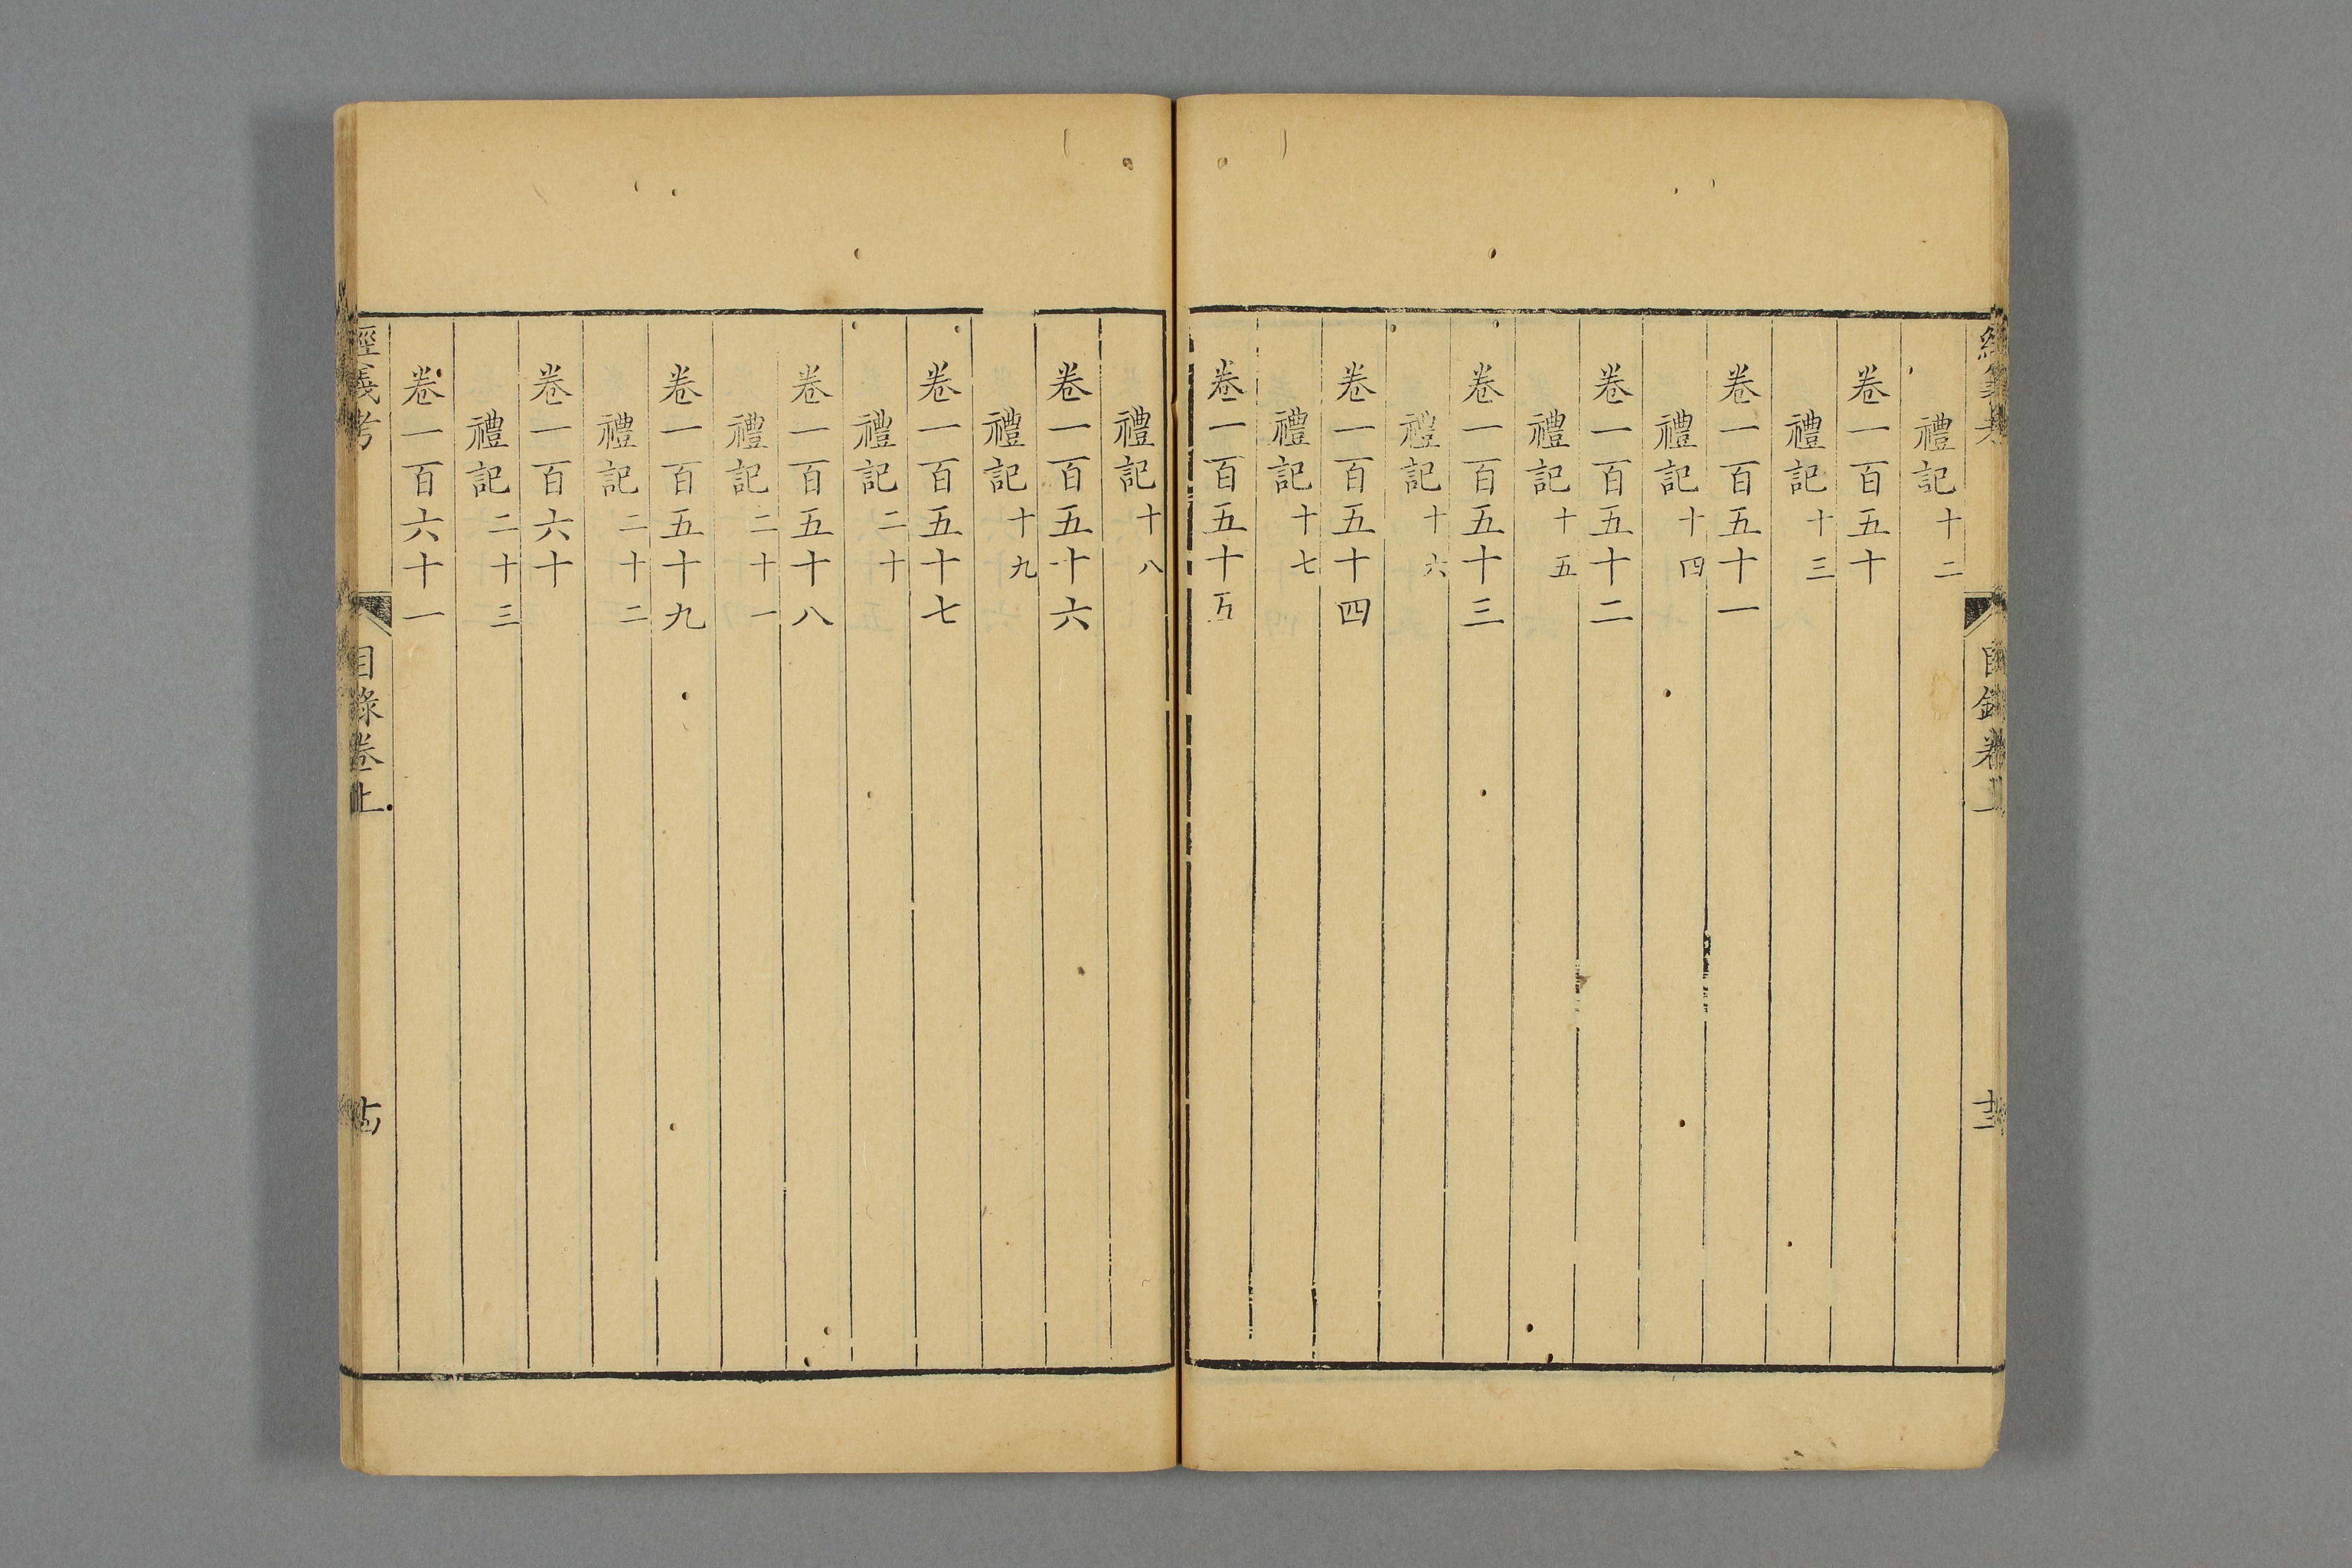 禮記十二
卷一百五十
禮記十三
卷一百五十一
禮記十四
卷一百五十二
禮記十五
卷一百五十三
禮記十六
卷一百五十四
禮記十七
卷一百五十五
禮記十八
卷一百五十六
禮記十九
卷一百五十七
禮記二十
卷一百五十八
禮記二十一
卷一百五十九
禮記二十二
卷一百六十
禮記二十三
卷一百六十一
經義考 目錄卷上